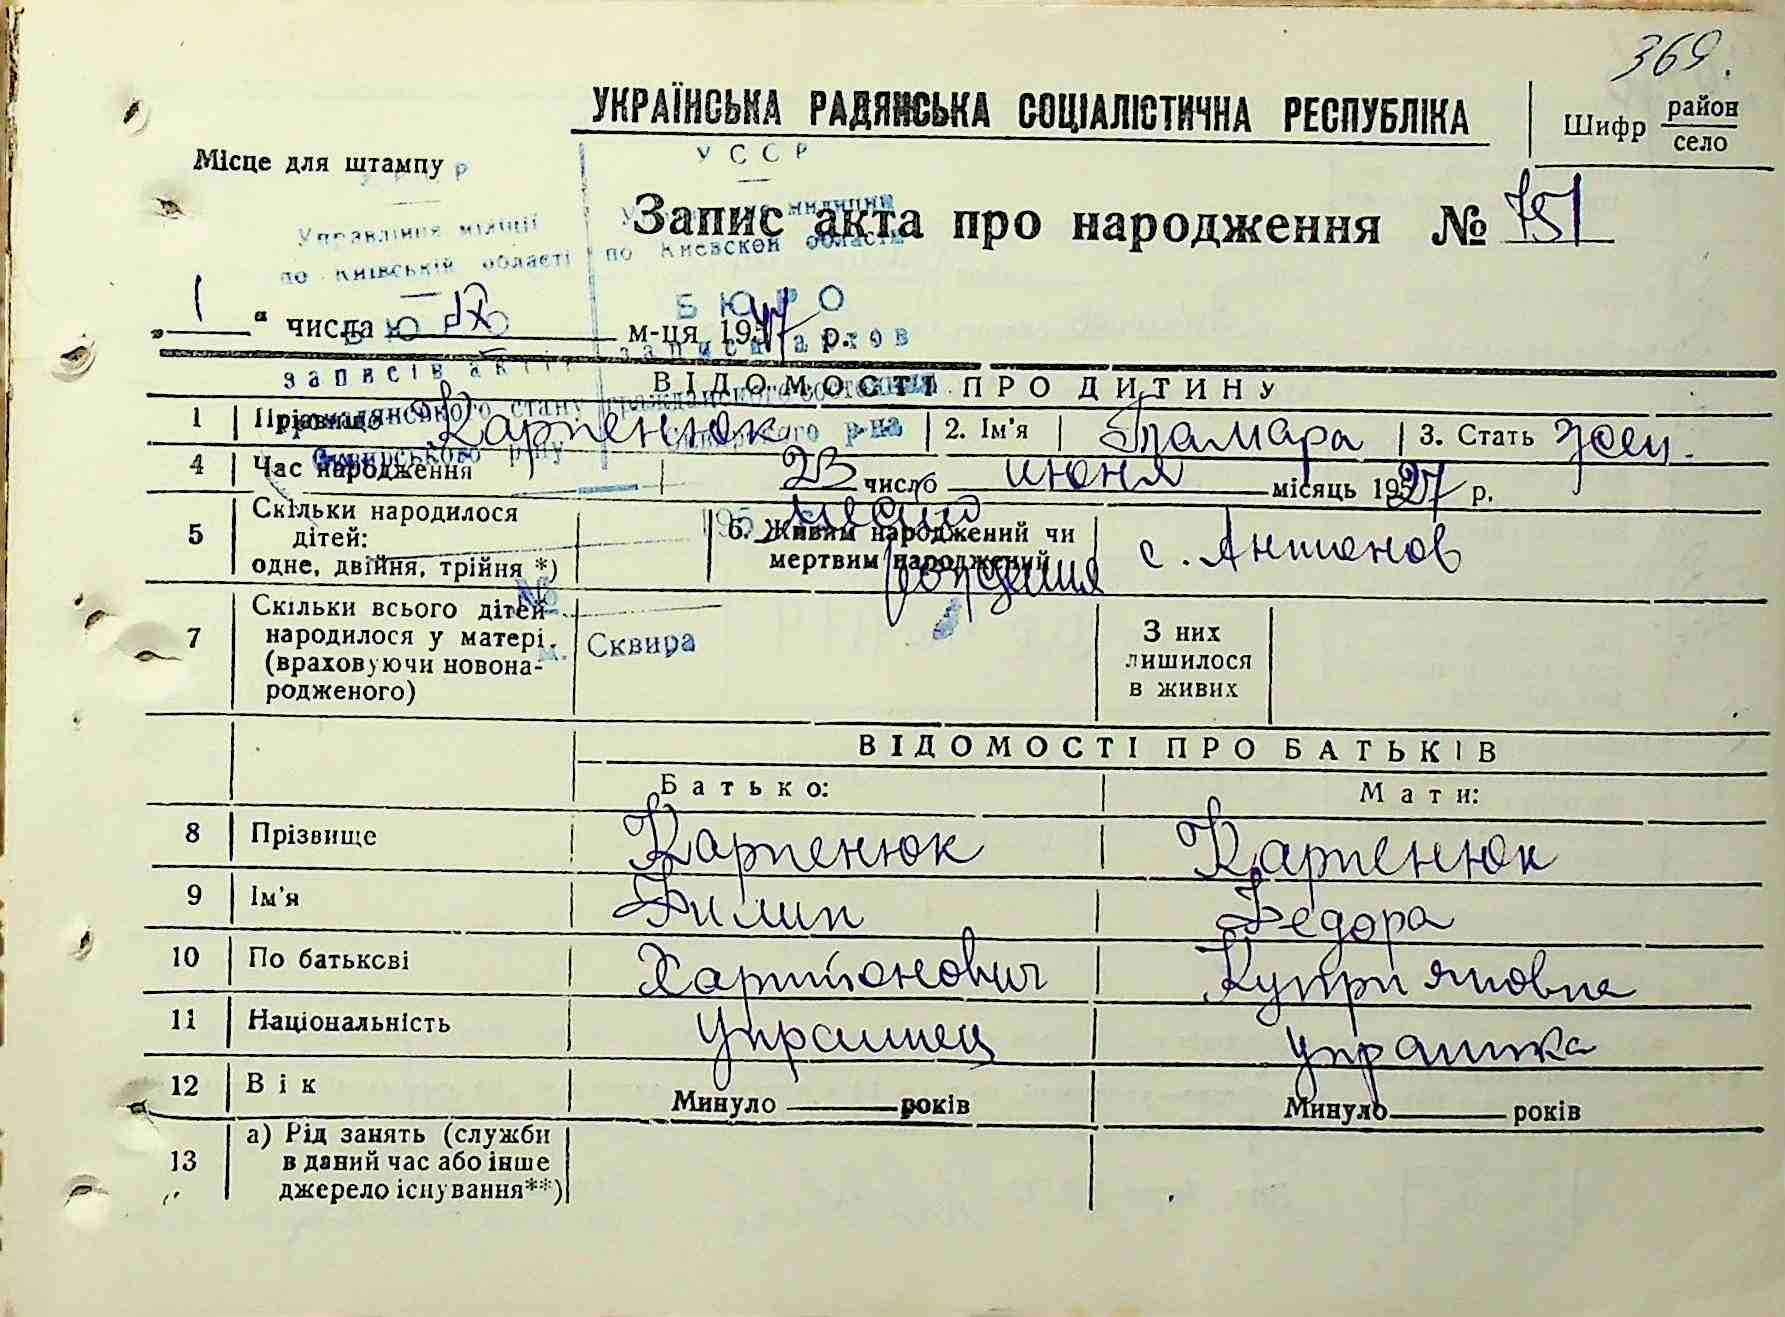 369.
УКРАЇНСЬКА РАДЯНСЬКА СОЦІАЛІСТИЧНА РЕСПУБЛІКА
Шифр район село
Місце для штампу
УССР
Запис акта про народження № 751
Управління міліції
по Київській області
по Киевской области
БЮРО
„ 1 “ числа м-ця 19 р.
записів актів
записи актов
ВІДОМОСТІ ПРО ДИТИНУ
1 Прізвище Карпенюк 2. Ім'я Тамара 3. Стать жен.
Сквирського р-ну
р-на
4 Час народження 23 число июня місяць 1927 р.
5 Скільки народилося дітей: одне, двійня, трійня *)
6. Живим народжений чи мертвим народжений
место рождения
с. Антонов
№
7 Скільки всього дітей народилося у матері. (враховуючи новонародженого)
м. Сквира
З них лишилося в живих
ВІДОМОСТІ ПРО БАТЬКІВ
Батько: Мати:
8 Прізвище Карпенюк Карпенюк
9 Ім'я Филип Федора
10 По батькові Харитонович Куприяновна
11 Національність украинец украинка
12 Вік Минуло років Минуло років
13 а) Рід занять (служби
в даний час або інше
джерело існування**)